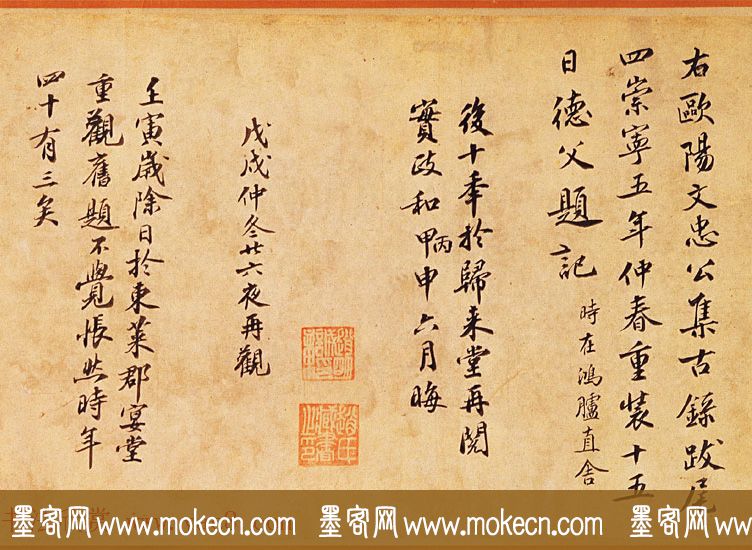 右歐陽文忠公集古錄跋尾
四崇寧五年仲春重裝十五
日德父題記
時在鴻臚直舍
後十年於歸来堂再閱
實政和甲丙申六月晦
戊戌仲冬廿六夜再觀
壬寅歲除日於東萊郡宴堂
重觀舊題不覺悵然時年
四十有三矣
墨客网 www.mokecn.com 墨客网 www.mokecn.com 墨客网 www